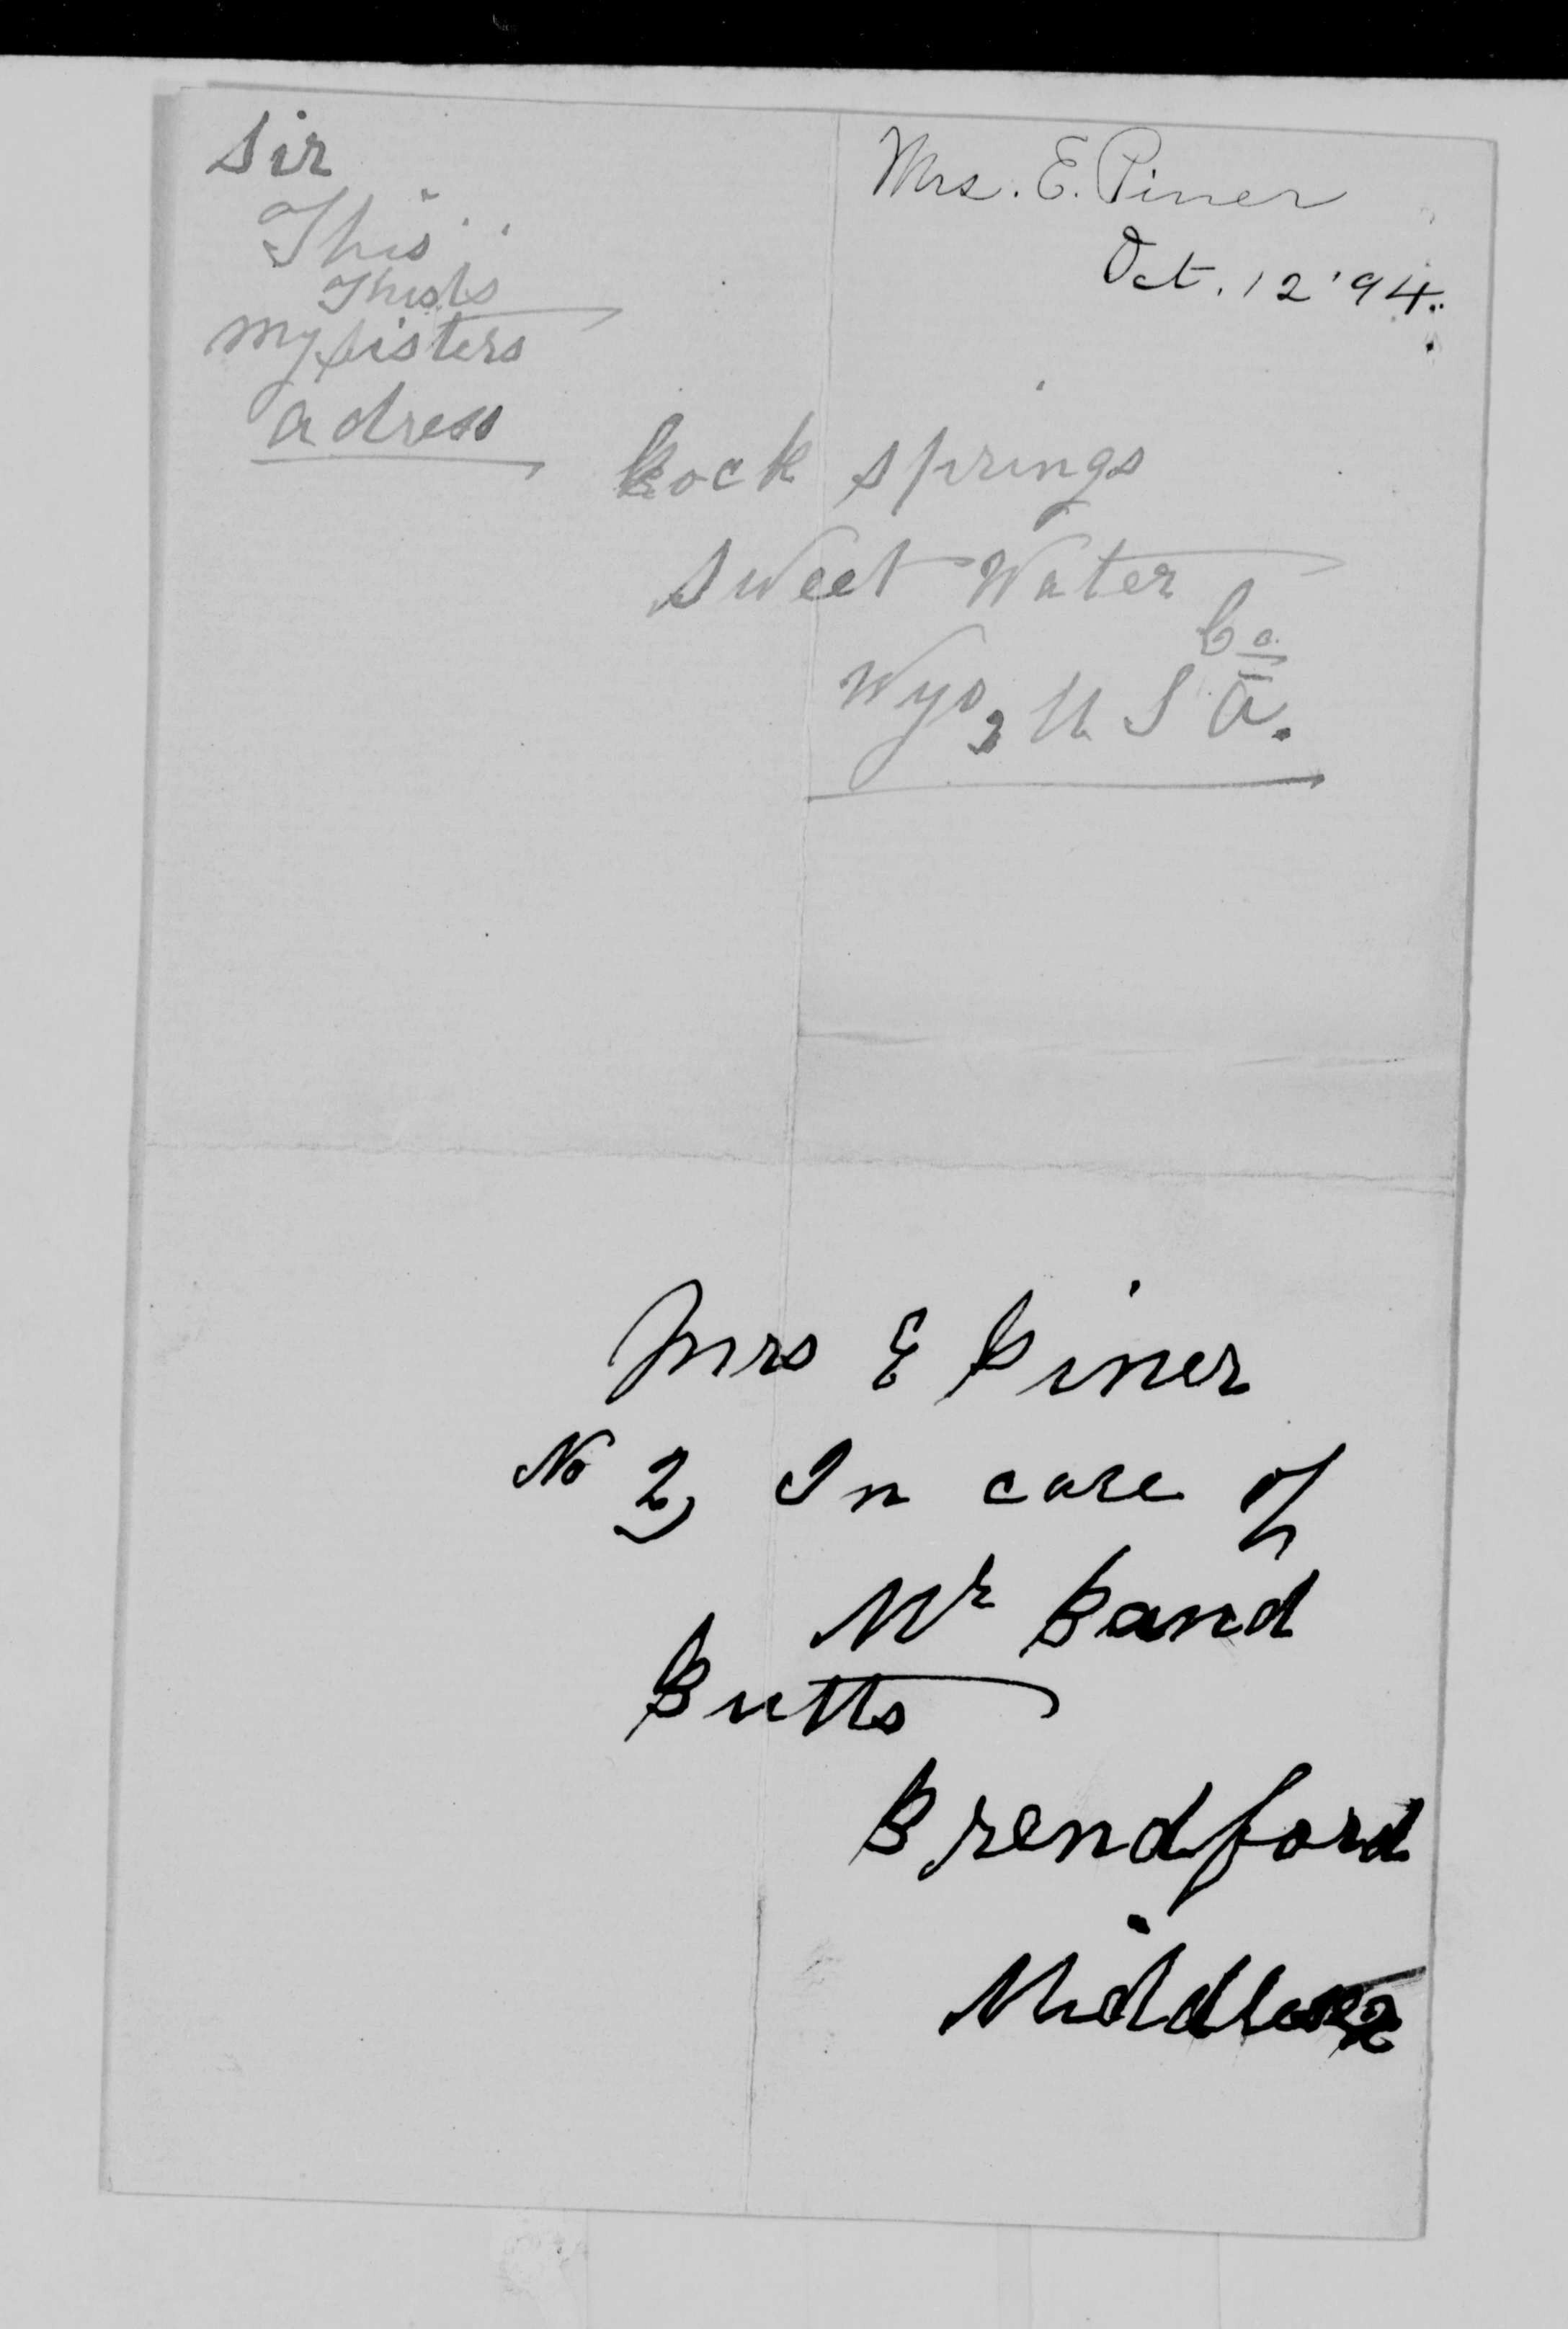 Sir
This
This is
my sisters
adress
Mrs. E. Piner
Oct. 12 '94.
Rock springs
Sweet Water
Co
Wyo, U S a.
Mrs E Piner
No 2, In care of
Mr Band
Butts
Brendford
Middlesex